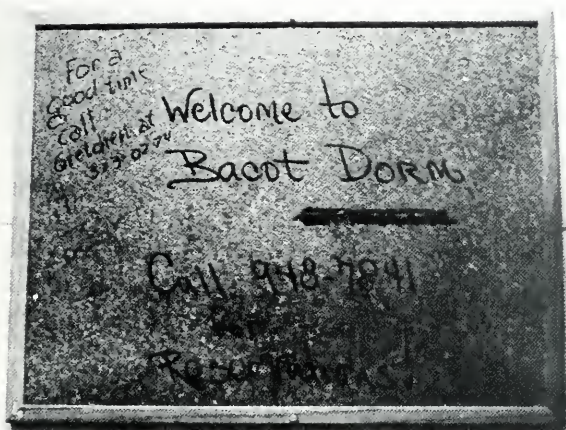 For a
Good time
Call
Gretchen at
Welcome to
Bacot Dorm
Call 948-7841
For
Reservations!